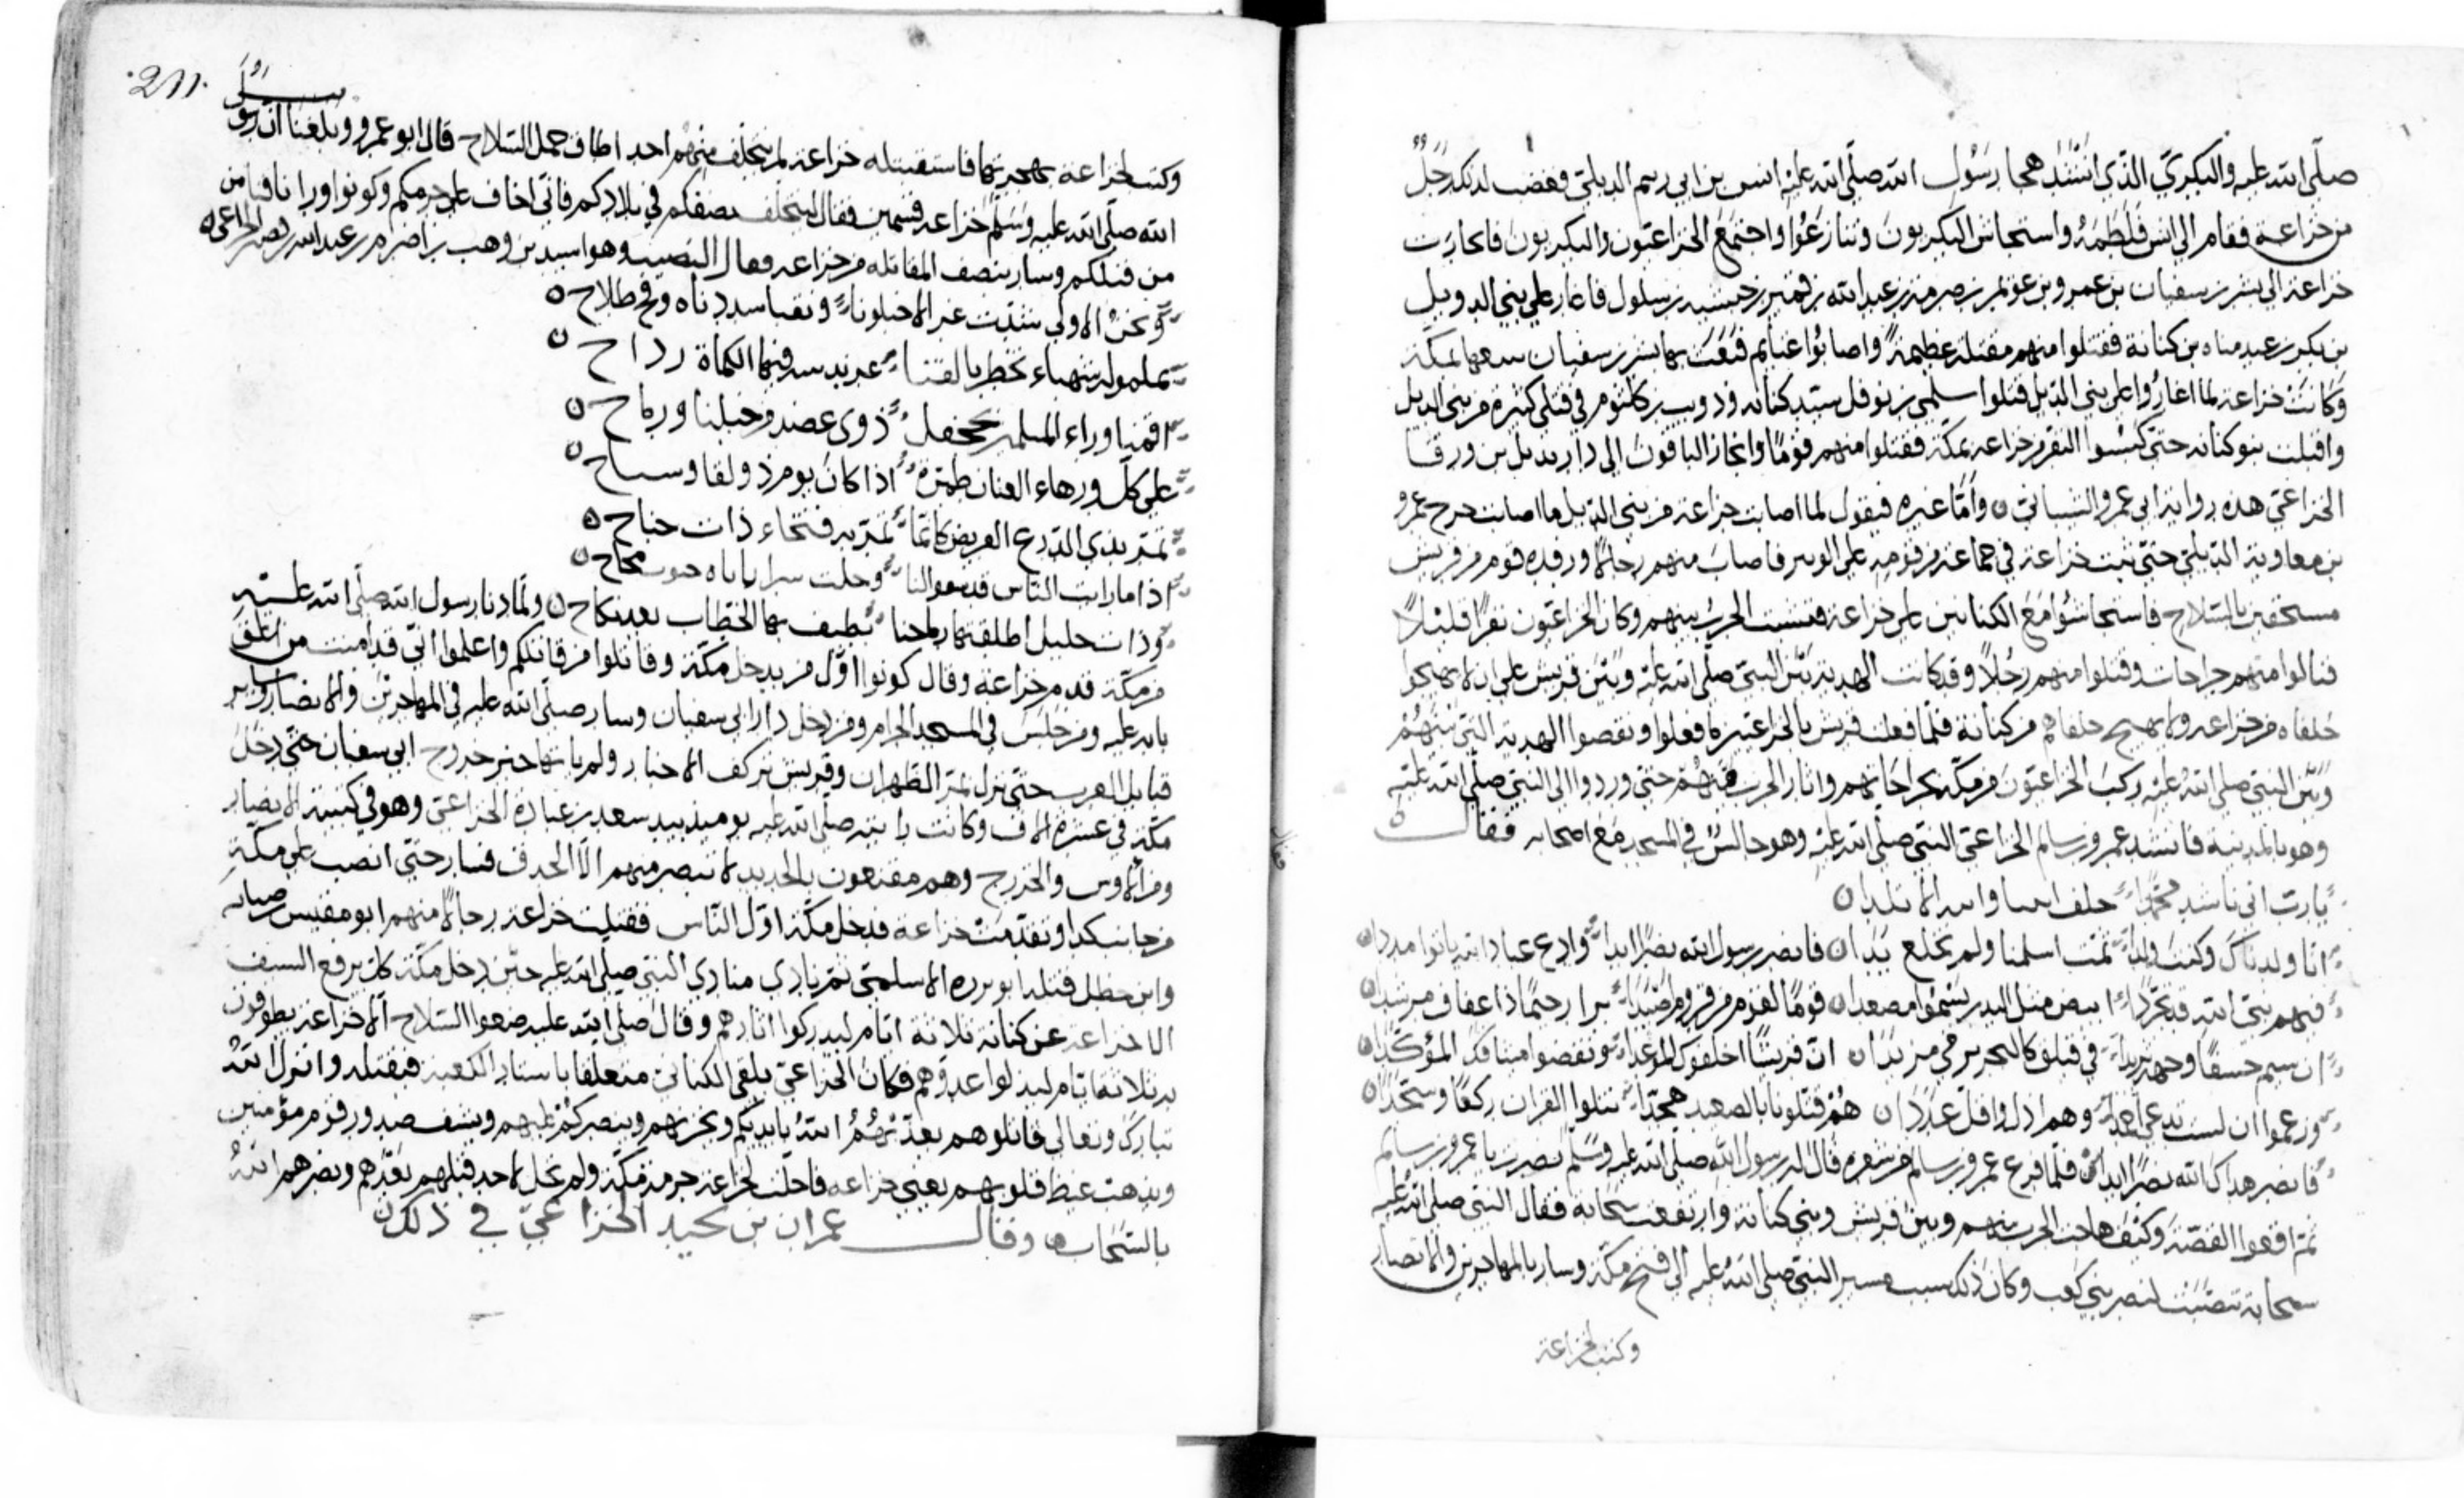 صلّى الله عليه والبكريّ الذي انشد هجا رسول الله صلّى الله عليه انس بن ابي رهم الديلي فغضب لذلك رجلٌ
من خزاعة فقام الى انس فلطمه واستجاش البكريون وتنازعوا واجتمع الخزاعيون والبكريون فانحازت
خزاعة الى بشر بن سفيان بن عمرو بن عويمر بن صرمة بن عبد الله بن قمير بن حبشية بن سلول فاغار على بني الديل
بن بكر بن عبد مناه بن كنانة فقتلوا منهم مقتلة عظيمة واصابوا غنايم فبعث بها بشر بن سفيان بمكة
وكانت خزاعة لما اغاروا على بني الديل قتلوا سلمى بن نوفل سيّد كنانه وذويب بن كلثوم في قتلى كثيرة من بني الديل
واقبلت بنو كنانه حتى كبسوا النفر من خزاعه بمكّة فقتلوا منهم قومًا وانحاز الباقون الى دار بديل بن ورقا
الخزاعي هذه رواية ابي عمرو الشيباني وامّا غيره فيقول لما اصابت خزاعة من بني الديل ما اصابت خرج عمرو
بن معاوية الديلي حتى بيّت خزاعة في جماعة من قومه على الوتير فاصاب منهم رجلاً ورفده قوم من قريش
مستخفين بالسلاح فاستجاشوا مع الكنانيين على خزاعة فنشبت الحرب بينهم وكان الخزاعيّون نفرًا قليلاً
فنالوا منهم جراحات وقتلوا منهم رجلاً وقد كانت الهدنة بين النبي صلّى الله عليه وبين قريش على ان لا يهيجوا
حلفاه من خزاعه ولا يهيج حلفاهم من كنانة فلمّا فعلت قريش بالخزاعيّين ما فعلوا ونقضوا الهدنة التي بينهم
وبين النبي صلى الله عليه ركب الخزاعيّون من مكّة بجراحاتهم واثار الحرب بهم حتى وردوا الى النبي صلّى الله عليه
وهو بالمدينة فانشد عمرو بن سالم الخزاعي النبي صلّى الله عليه وهو جالس في المسجد مع اصحابه فقال
يا ربّ اني ناشد محمّدا حلف ابينا وابيه الاتلدا
انا ولدناك وكنت ولدا ثمّت اسلمنا ولم ننزع يدا فانصر رسول الله نصرًا ابدا وادع عباد الله ياتوا مددا
فيهم نبيّ الله قد تجرّدا ابيض مثل البدر يسموا مصعدا
ان سيم خسفًا وجهه تربّدا في فيلق كالبحر يرمي مزبدا ان قريشًا اخلفوك الموعدا ونقضوا ميثاقك المؤكّدا
وزعموا ان لست تدعي احدا وهم اذل واقل عددا هم قتلونا بالصعيد هجّدا نتلوا القران ركّعًا وسجّدا
فانصر هداك الله نصرًا ابدا فلمّا فرغ عمرو بن سالم من شعره قال له رسول الله صلى الله عليه وسلّم نصرت يا عمرو بن سالم
ثم وكيف هاجت الحرب بينهم وبين قريش وبني كنانه وارتفعت سحابة فقال النبي صلى الله عليه
سحابة تنصّبت لنصر بني كعب وكان ذلك سبب مسير النبي صلى الله عليه الى فتح مكّة وسار بالمهاجرين والانصار
وكتب لخزاعة
٢١١
وكتب لخزاعة بهجرتها فاستقبله خزاعه لم يتخلّف منهم احد اطاف حمل السّلاح قال ابو عمرو وبلغنا ان رسول
الله صلّى الله عليه وسلّم خزاعة قسمين فقال ليتخلّف نصفكم في بلادكم فاني اخاف على حرمكم وكونوا وراينا من
من قبلكم وسار بنصف المقاتله من خزاعه فقال وهو اسيد بن وهب بن اصرم بن عبد الله بن قمير الخزاعي
ونحن الاولى سدّت
تخطر بالقنا فيها الكماة رداح
اقمنا وراء المسلمين بجحفل ذوى عضد من خيلنا ورماح
على كلّ ورهاء العنان طمرّة اذا كان يوم ذو لقا
تمرّ بذي الدرع العريض كانّما تمرّ به فتخاء ذات جناح
اذا ما رايت النّاس
وذات حليل اطلقتها رماحنا تطيف بها الخطّاب بعد نكاح ولمّا دنا رسول الله صلّى الله عليه
من مكّة قدم خزاعة وقال كونوا اوّل من يدخل مكّة وقاتلوا من قاتلكم واعلموا انّي قد امنت من اغلق
بابه عليه ومن جلس في المسجد الحرام ومن دخل دار ابي سفيان وسار صلّى الله عليه في المهاجرين والانصار وساير
قبايل العرب حتى نزل بمرّ الظهران وقريش الاخبار ولم ياتها خبر خروج ابي سفيان حتى دخل
مكّة في عشرة الاف وكانت راية صلّى الله عليه يومئذ بيد سعد بن عبادة الخزاعي وهو في كتيبة الانصار
من الاوس والخزرج وهم مقنعون بالحديد لا تبصر منهم الّا الحدق فسار حتى انصب على مكّة
من جانب كدا وتقدّمت خزاعة فدخل مكّة اوّل النّاس فقتلت خزاعة رجالاً منهم ابو مقيس بن صبابه
وابن خطل قتله ابو برزة الاسلمي ثم نادى منادي النبي صلّى الله عليه حين دخل مكّة كان يرفع السيف
الا خزاعة عن كنانة ثلاثة ايّام ليدركوا اثارهم وقال صلّى الله عليه ضعوا السّلاح الّا خزاعة يطوفون
به ثلاثة ايّام عدوّهم فكان الخزاعي يلقى الكناني متعلّقا باستار الكعبة فيقتله وانزل الله
تبارك وتعالى قاتلوهم يعذّبهم الله بايديكم ويخزهم وينصركم عليهم ويشف صدور قوم مؤمنين
ويذهب غيظ قلوبهم يعني خزاعه فاحلّت لخزاعة حرمة مكّة ولم تحل لاحد قبلهم ونصرهم الله
بالسّحاب وقال عمران بن الخزاعيّ في ذلك